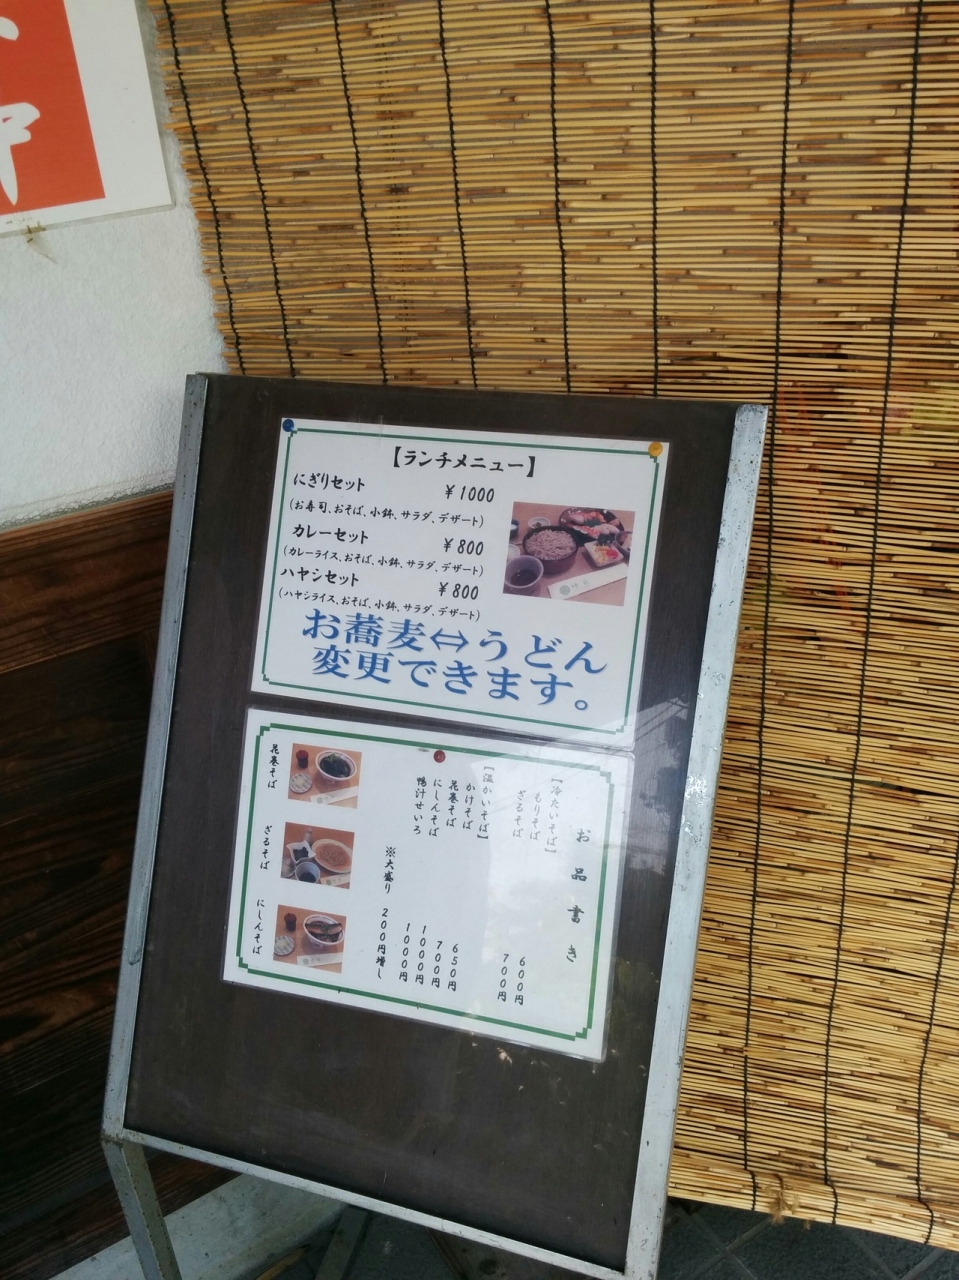 【ランチメニュー】
にぎりセット ¥1000
(お寿司、おそば、小鉢、サラダ、デザート)
カレーセット ¥800
(カレーライス、おそば、小鉢、サラダ、デザート)
ハヤシセット ¥800
(ハヤシライス、おそば、小鉢、サラダ、デザート)
お蕎麦⇔うどん
変更できます。
お品書き
【冷たいそば】
もりそば 600円
ざるそば 700円
【温かいそば】
かけそば 650円
花巻そば 700円
にしんそば 1000円
鴨汁せいろ 1000円
※大盛り 200円増し
花巻そば
ざるそば
にしんそば